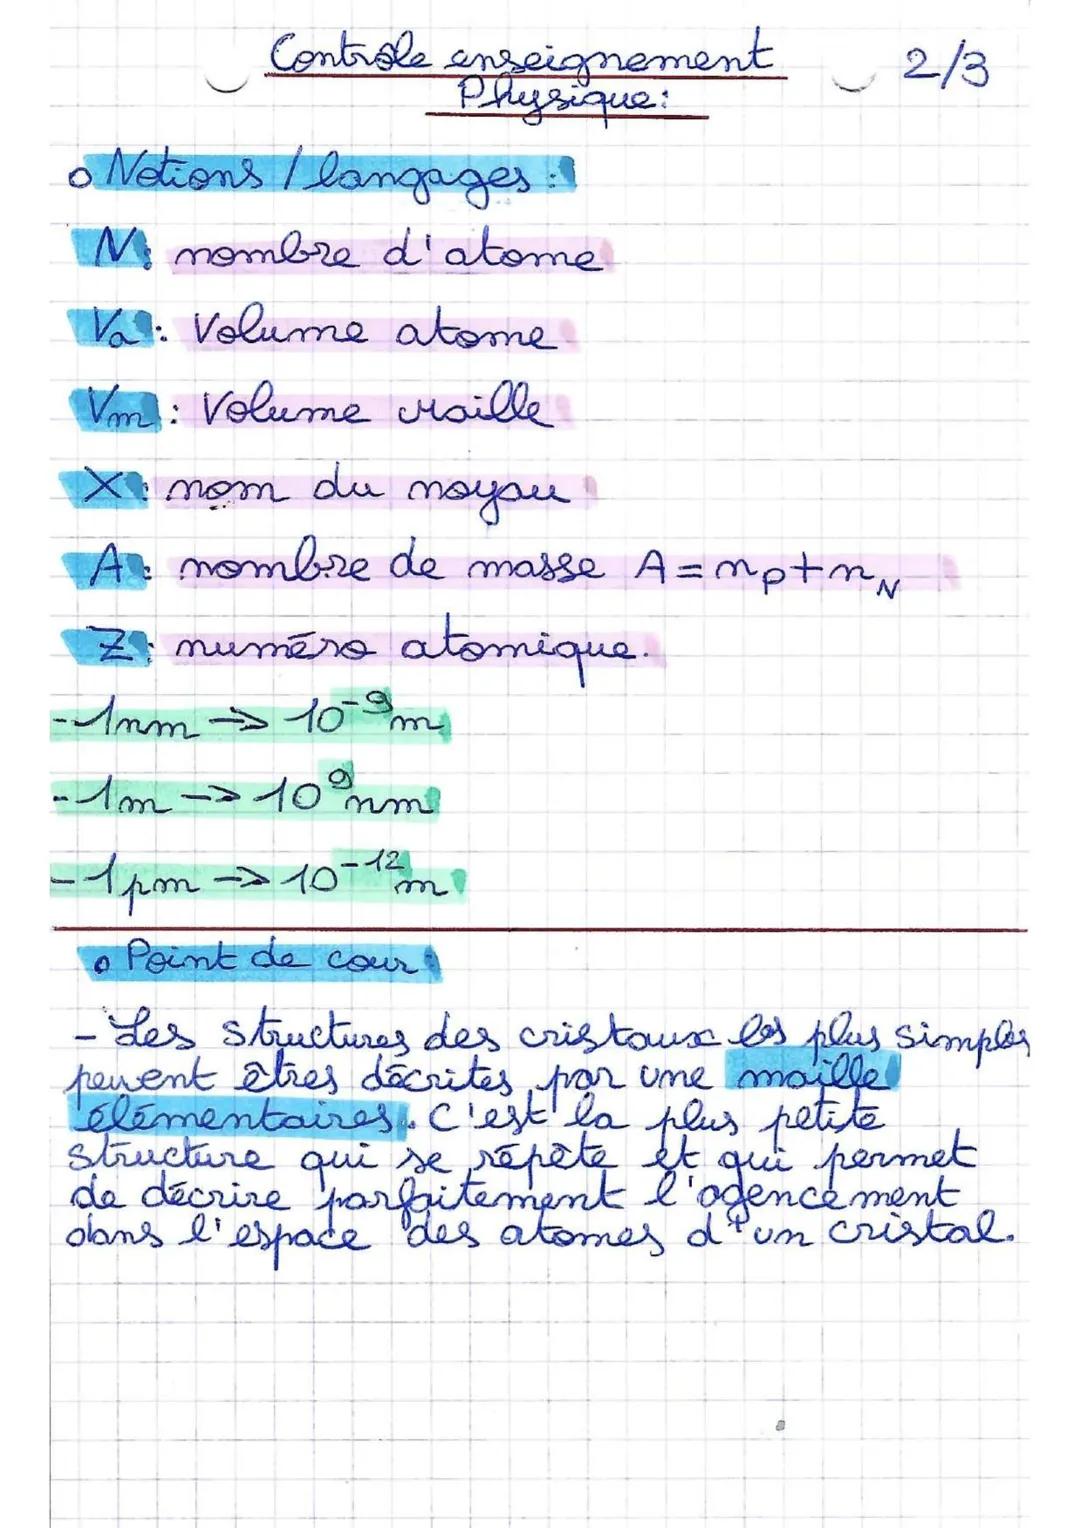 Contrôle enseignement 2/3
Physique:
o Notions / langages :
N: nombre d'atome
Va: Volume atome
Vm: Volume maille
X: nom du noyau
A: nombre de masse A = np + nN
Z: numéro atomique.
- 1nm → 10⁻⁹m
- 1m → 10⁹nm
- 1pm → 10⁻¹²m
o Point de cour :
- Les structures des cristaux les plus simples
peuvent êtres décrites par une maille
élémentaires. C'est la plus petite
structure qui se répète et qui permet
de décrire parfaitement l'agencement
dans l'espace des atomes d'un cristal.